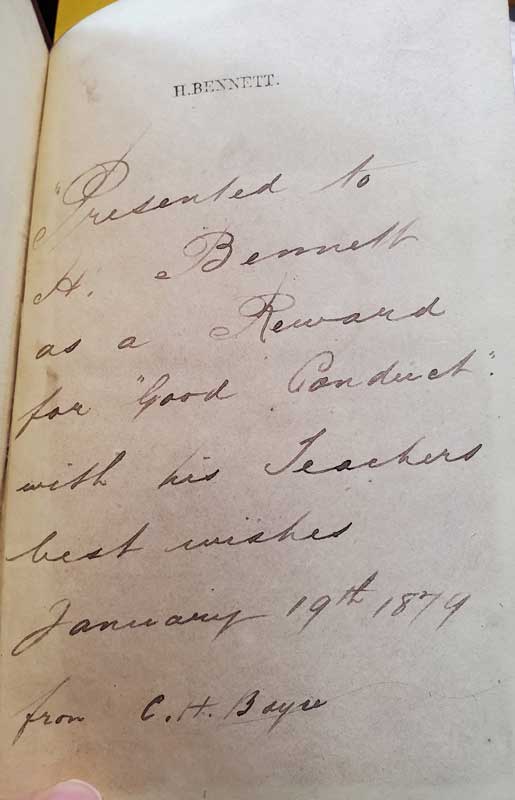 H.BENNETT.
"Presented to
H. Bennett
as a Reward
for "Good Conduct".
with his Teachers
best wishes
January 19th 1879
from C. H. Bayse